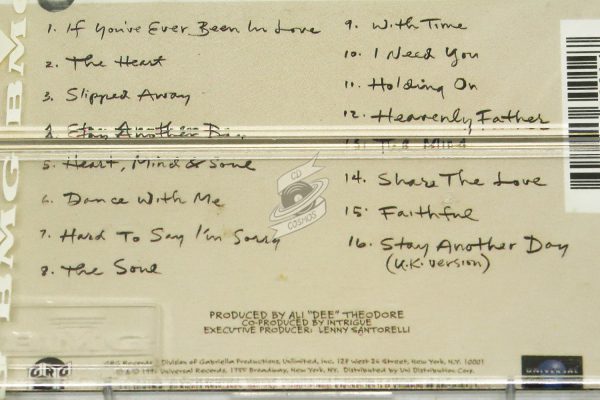 1. If You've Ever Been In Love
2. The Heart
3. Slipped Away
4. Stay Another Day
5. Heart, Mind & Soul
6. Dance With Me
7. Hard To Say I'm Sorry
8. The Soul
9. With Time
10. I Need You
11. Holding On
12. Heavenly Father
13. The Mind
14. Share The Love
15. Faithful
16. Stay Another Day
(U.K. Version)
CD
COSMOS
PRODUCED BY ALI "DEE" THEODORE
CO-PRODUCED BY INTRIGUE
EXECUTIVE PRODUCER: LENNY SANTORELLI
Records Division of Gabriella Productions, Unlimited, Inc. West 26 Street, New York, N.Y. 10001
Universal Records, 1755 Broadway, New York, NY. Distributed by Uni Distribution Corp.
UNIVERSAL
BMG BMG